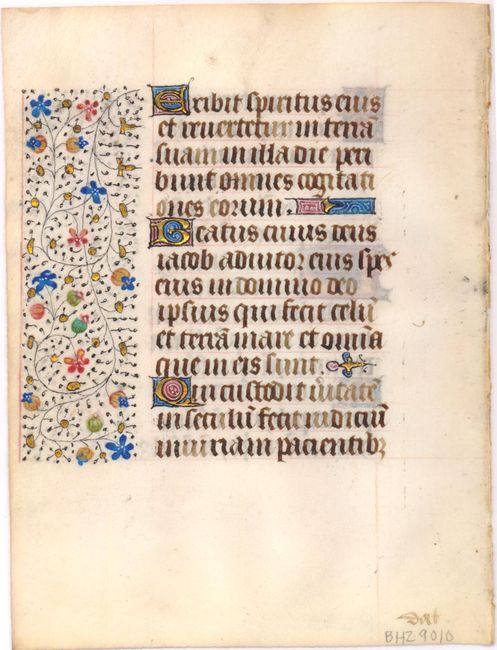 Exibit spiritus eius
et revertetur in terrā
suam in illa die peri
bunt omnes cogitati
ones eorum.
Beatus cuius deus
iacob adiutor eius spes
eius in domino deo
ipsius qui fecit celū
et terrā mare et omīa
que in eis sunt.
Qui custodit v̄itatē
in seculū fecit iudiciū
iniuriam pacientibꝫ
BHZ 9010